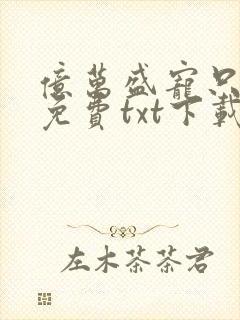 億萬盛寵只
免費txt下載
左木茶茶君